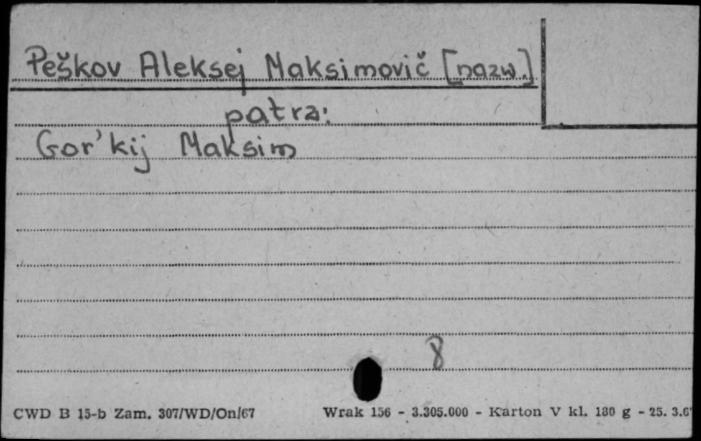 Peškov Aleksej Maksimovič [nazw.]
patrz:
Gor'kij Maksim
8
CWD B 15-b Zam. 307/WD/On/67 Wrak 156 - 3.305.000 - Karton V kl. 180 g - 25. 3.6